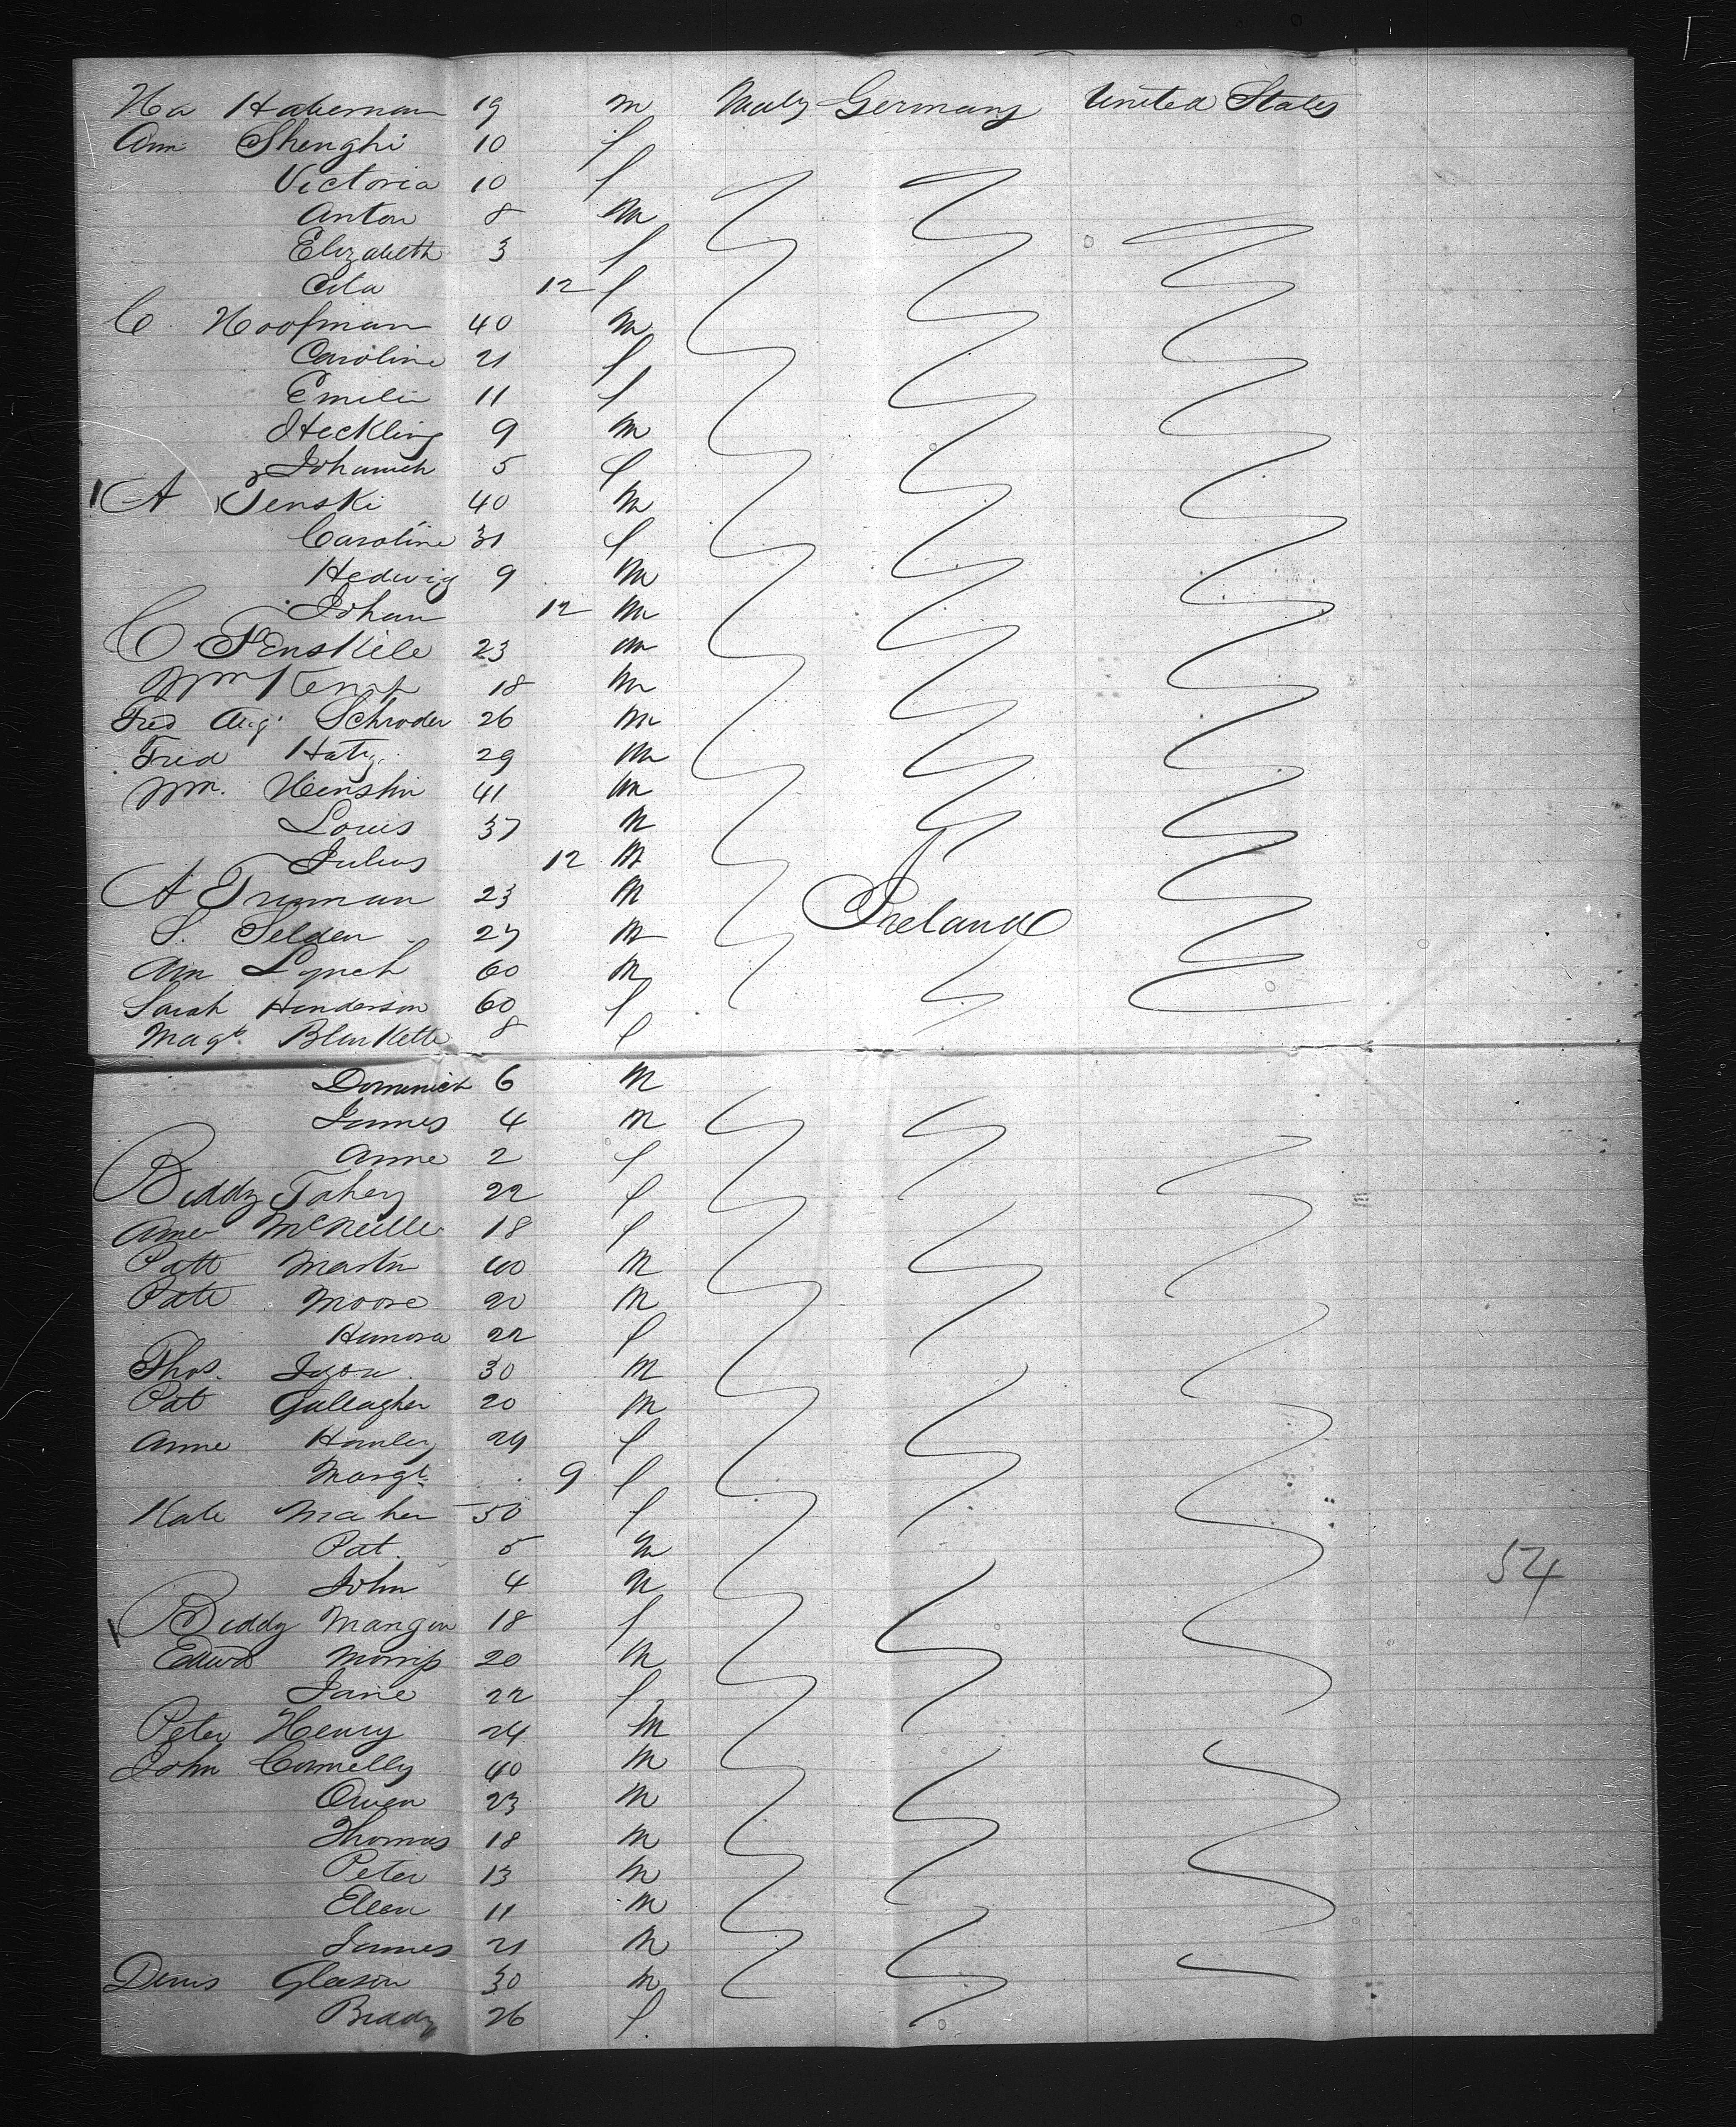 Ha Haberman 19 m Germany United States
Ann Shenghi 10 f
Victoria 10 f
Anton 8 m
Elizabeth 3 f
12 f
C Hoofman 40 m
Caroline 21 f
Emilie 11 f
Heckling 9 m
Johannh 5 f
A Tenski 40 m
Caroline 31 f
Hedwig 9 m
Johan 12 m
C. Fenskile 23 m
Wm 18 m
Fred Aug. Schroder 26 m
Fred Hatz 29 m
Wm. Henshin 41 m
Louis 37 m
Julius 12 m
A Truman 23 m
Ireland
S. Selden 27 m
Ann Lynch 60 m
Sarah Henderson 60 f
Magt Blunkette 8 f
Dominick 6 m
James 4 m
Anne 2 f
Biddy Fahey 22 f
Anne McNeille 18 f
Patt Martin 60 m
Patt Moore 20 m
Hunora 22 f
Thos. 30 m
Pat Gallagher 20 m
Anne Hanley 24 f
Margt 9 f
Kate Maher 50 f
Pat. 5 m
John 4 m
54
Biddy Mangin 18 f
Edwd Morris 20 m
Jane 22 f
Peter Henry 24 m
John Connelly 40 m
Owen 23 m
Thomas 18 m
Peter 13 m
Ellen 11 m
James 21 m
Denis Gleason 30 m
Biddy 26 f.